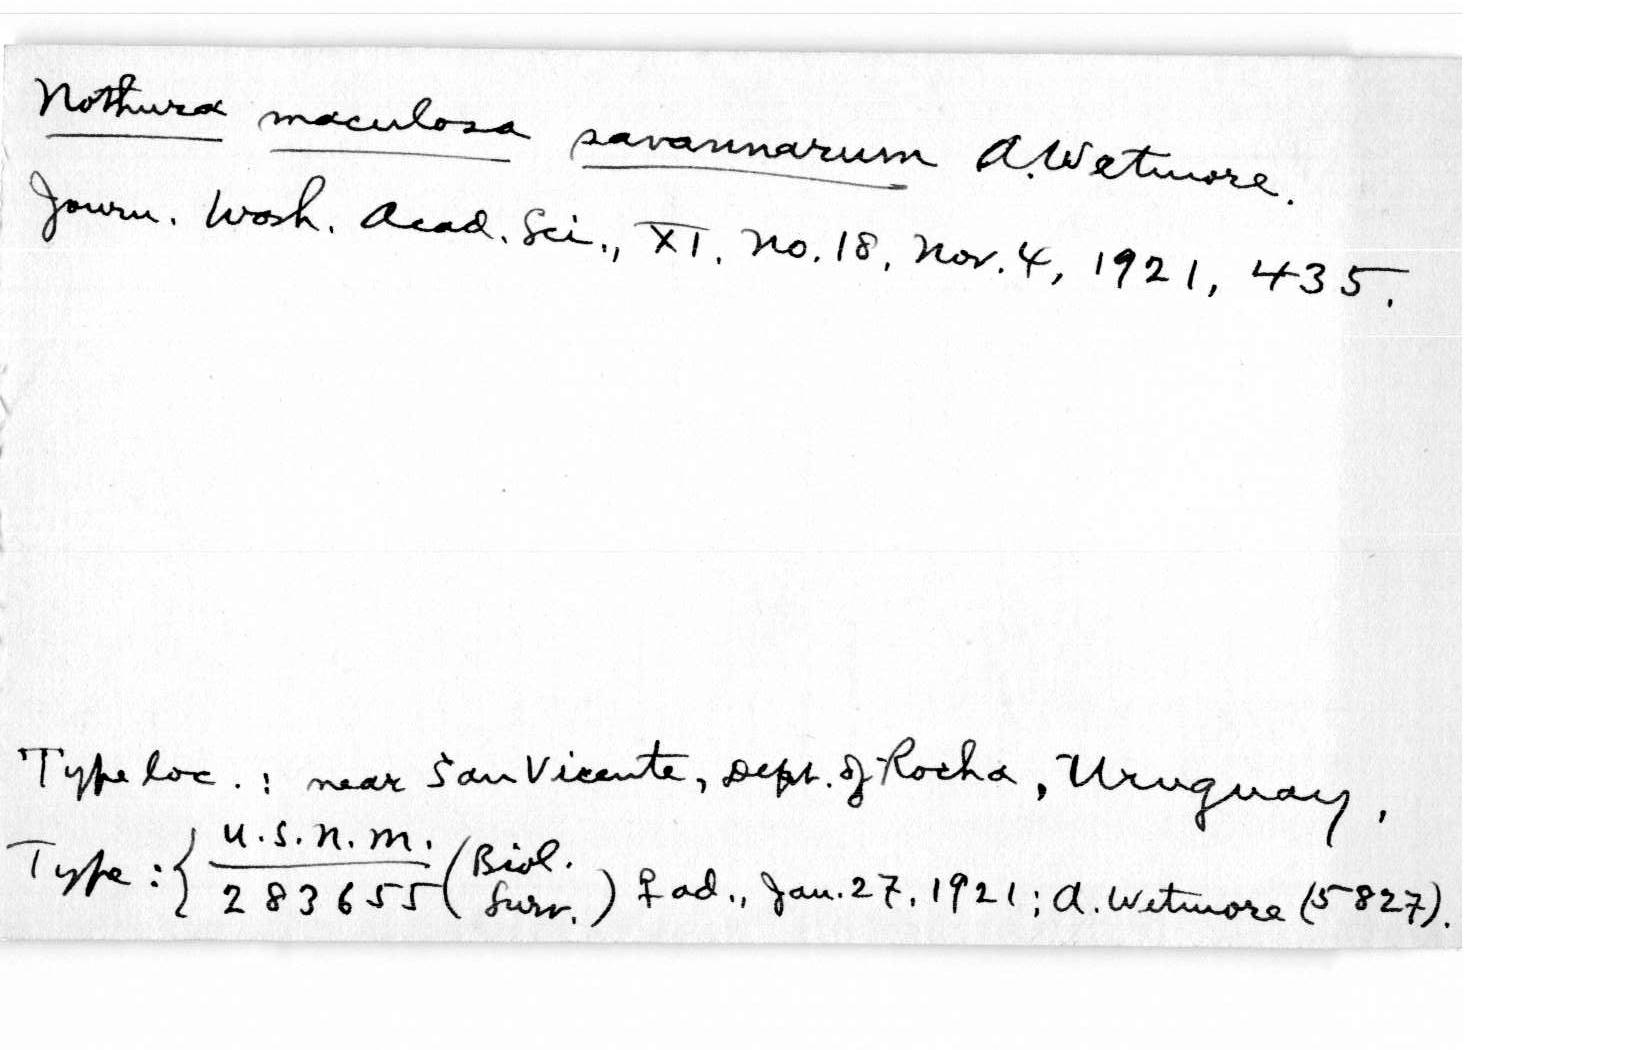 Nothura maculosa savannarum A. Wetmore.
Journ. Wash. Acad. Sci., XI, no. 18, Nov. 4, 1921, 435.
Type loc.: near San Vicente, Dept. of Rocha, Uruguay,
Type: { U.S.N.M. 283655 (Biol. Surv.) ♀ ad., Jan. 27, 1921; A. Wetmore (5827).